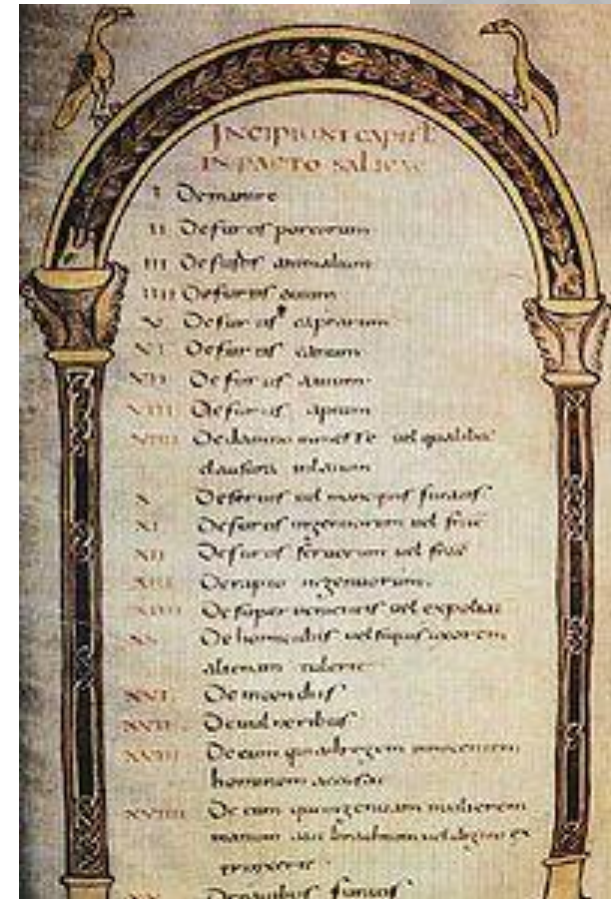 INCIPIUNT CAPITL
IN PACTO SALICAE
I De mannire
II De furtis porcorum
III De furtis animalium
IIII De furtis ovium
V De furtis caprarum
VI De furtis canum
VII De furtis avium
VIII De furtis apium
VIIII De damno in vel qualibet
clausura
X De servis vel mancipiis furatis
XI De furtis ingenuorum vel
XII De furtis servorum vel
XIII De rapto ingenuorum
XIIII De super vel expoliat
XV De homicidiis vel uxorem
alienam tulerit
XVI De incendiis
XVII De vulneribus
XVIII De eum qui ad regem innocentem
hominem accusat
XVIIII De eum qui ingenuam mulierem
manum aut brachium vel
XX De